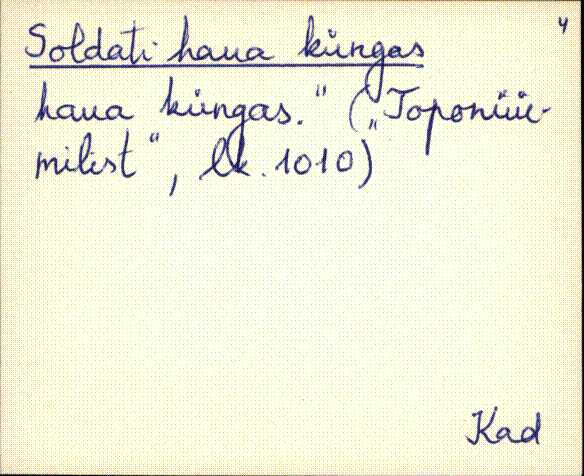 4
Soldati haua küngas
haua küngas." („Toponüü-
milist", lk. 1010)
Kad